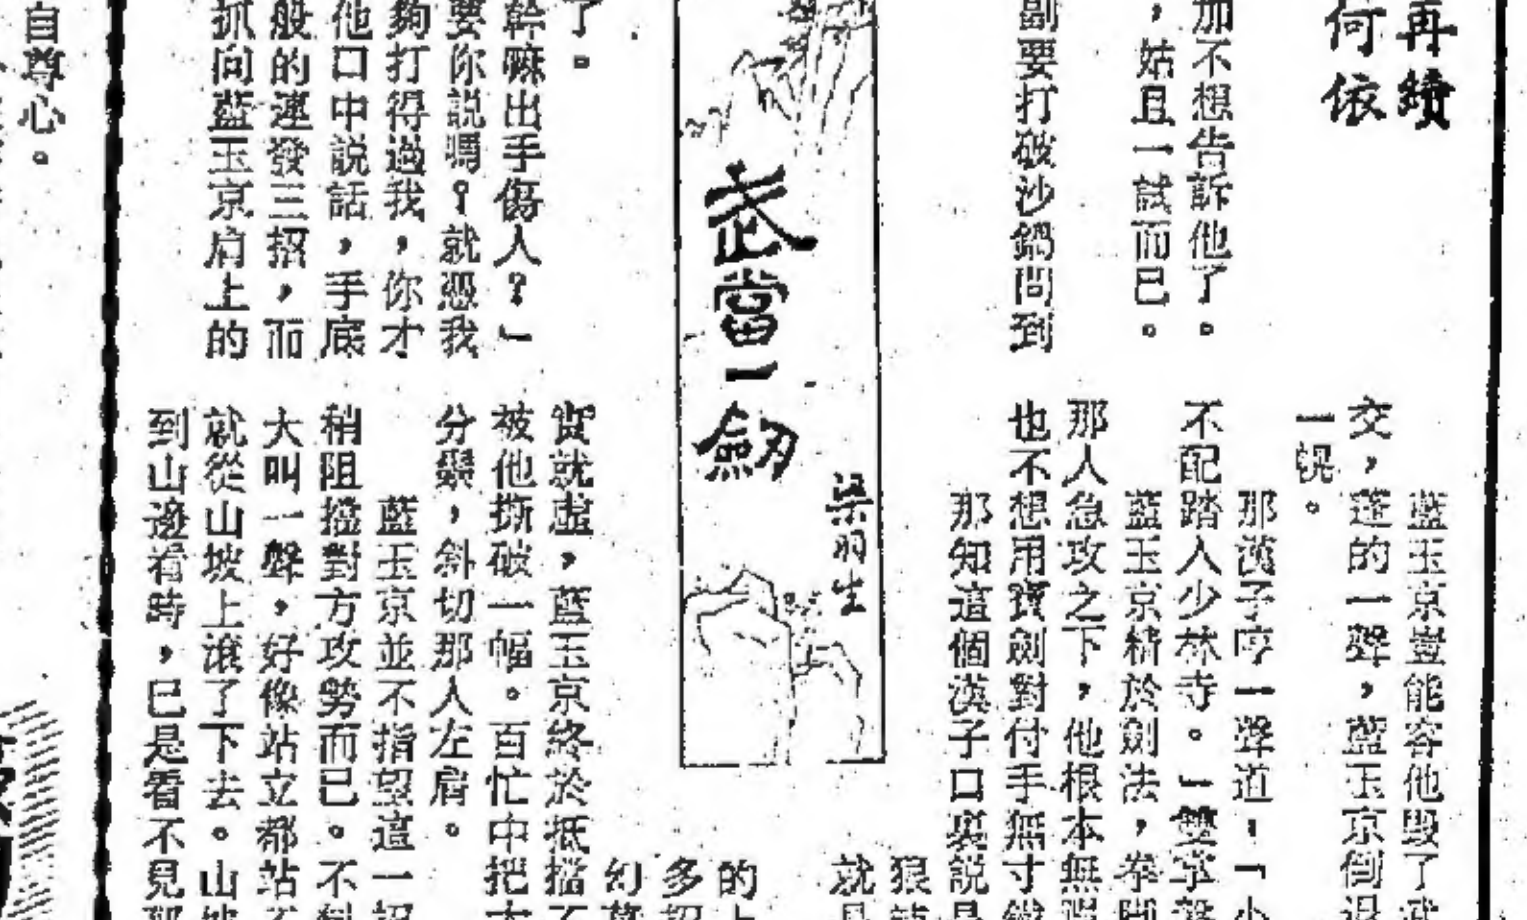 再續
何依
加不想告訴他了。
，姑且一試而已。
副要打破沙鍋問到
藍玉京豈能容他毀了
交，蓬的一聲，藍玉京倒退
一幌。
那漢子哼一聲道：「小
不配踏入少林寺。」雙掌
藍玉京精於劍法，拳腳
那人急攻之下，他根本無
也不想用寶劍對付手無寸鐵
那知這個漢子口裏説
狠
就
武當一劍
梁羽生
的
多招
幻
了。
幹嘛出手傷人？」
要你説嗎？就憑我
夠打得過我，你才
他口中説話，手底
般的連發三招，而
抓向藍玉京肩上的
實就虛，藍玉京終於抵擋不
被他撕破一幅。百忙中把
分鬃，斜切那人左肩。
藍玉京並不指望這一招
稍阻擋對方攻勢而已。不料
大叫一聲，好像站立都站不
就從山坡上滾了下去。山坡
到山邊看時，已是看不見那
自尊心。